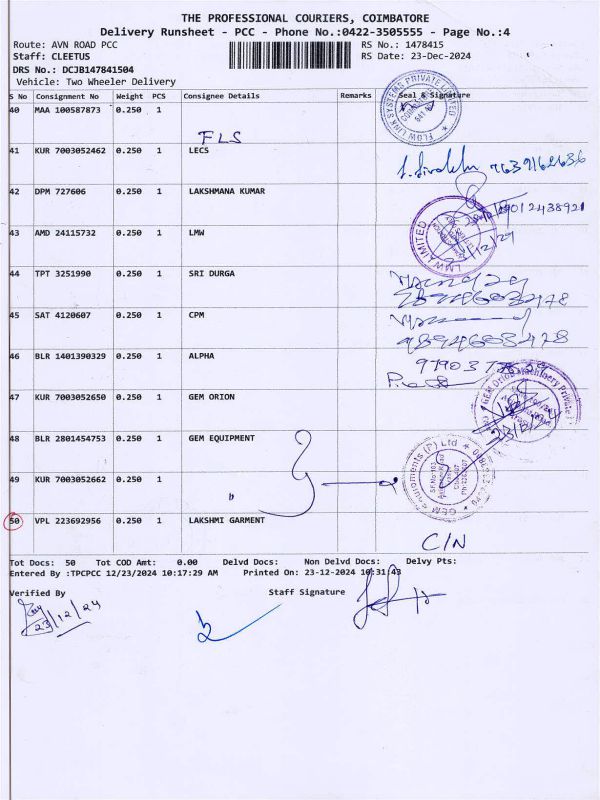 THE PROFESSIONAL COURIERS, COIMBATORE
Delivery Runsheet - PCC - Phone No.:0422-3505555 - Page No.:4
Route: AVN ROAD PCC RS No.: 1478415
Staff: CLEETUS RS Date: 23-Dec-2024
DRS No.: DCJB147841504
Vehicle: Two Wheeler Delivery
S No Consignment No Weight PCS Consignee Details Remarks Seal & Signature
40 MAA 100587873 0.250 1
FLS
41 KUR 7003052462 0.250 1 LECS
42 DPM 727606 0.250 1 LAKSHMANA KUMAR
43 AMD 24115732 0.250 1 LMW
44 TPT 3251990 0.250 1 SRI DURGA
45 SAT 4120607 0.250 1 CPM
46 BLR 1401390329 0.250 1 ALPHA
47 KUR 7003052650 0.250 1 GEM ORION
48 BLR 2801454753 0.250 1 GEM EQUIPMENT
49 KUR 7003052662 0.250 1
"
50 VPL 223692956 0.250 1 LAKSHMI GARMENT
C/N
Tot Docs: 50 Tot COD Amt: 0.00 Delvd Docs: Non Delvd Docs: Delvy Pts:
Entered By :TPCPCC 12/23/2024 10:17:29 AM Printed On: 23-12-2024 10:31:43
Verified By Staff Signature
23/12/24